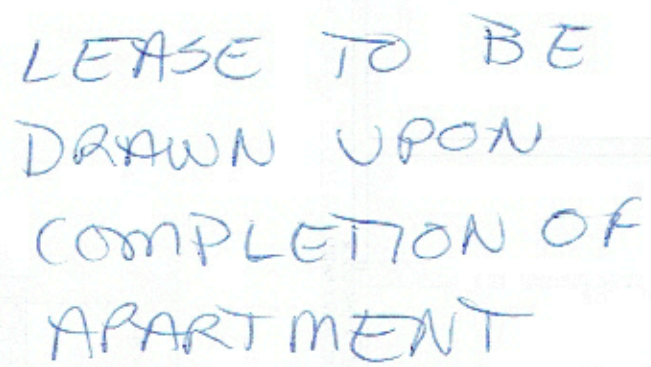 LEASE TO BE
DRAWN UPON
COMPLETION OF
APARTMENT